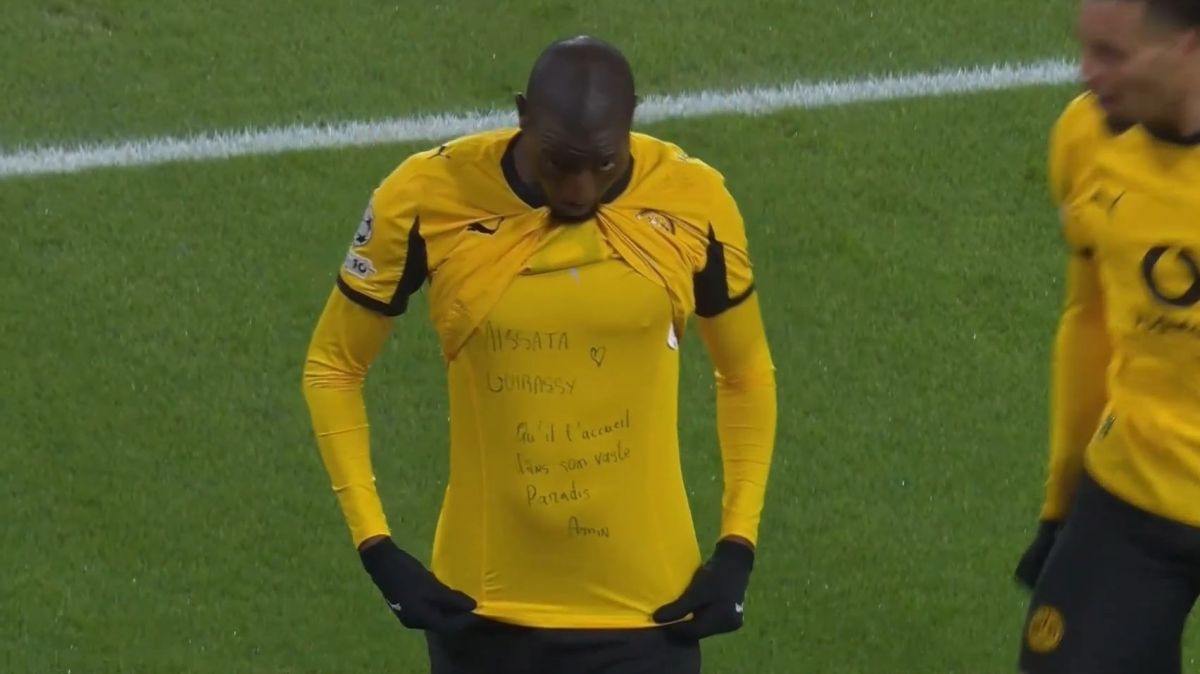 AISSATA
GUIRASSY
Qu'il t'accueil
Dans son vaste
Paradis
Amin
10